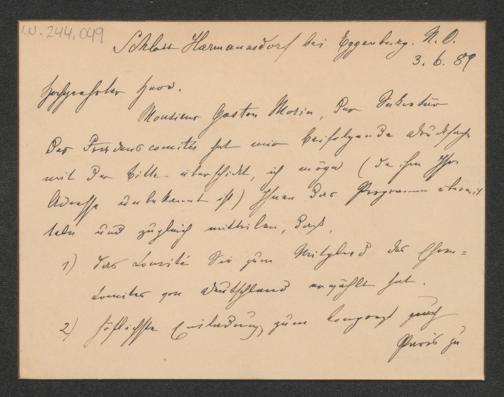 I.N. 244.049
Schloss Harmannsdorf bei Eggenburg. N. O.
3. 6. 89
Hochgeehrter Herr.
Monsieur Gaston Morin, der Sekretär
des Friedenscomités hat mir beifolgende Drucksache
mit der Bitte überschickt, ich möge (da ihm Ihre
Adresse unbekannt ist) Ihnen das Programm übermit
teln und zugleich mitteilen, daß,
1) das Comité Sie zum Mitglied des Ehren=
comites von Deutschland erwählt hat.
2) höflichste Einladung, zum Congress nach
Paris zu